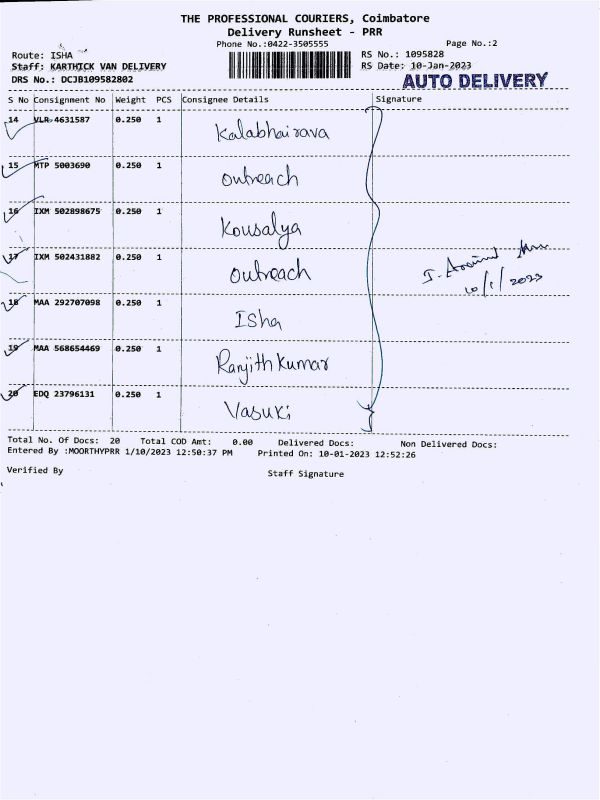 THE PROFESSIONAL COURIERS, Coimbatore
Delivery Runsheet - PRR
Phone No.:0422-3505555 Page No.:2
Route: ISHA RS No.: 1095828
Staff: KARTHICK VAN DELIVERY RS Date: 10-Jan-2023
DRS No.: DCJB109582802 AUTO DELIVERY
S No Consignment No Weight PCS Consignee Details Signature
14 VLR 4631587 0.250 1 Kalabhairava
15 MTP 5003690 0.250 1 Outreach
16 IXM 502898675 0.250 1 Kousalya
17 IXM 502431882 0.250 1 Outreach
10/1/2023
18 MAA 292707098 0.250 1 Isha
19 MAA 568654469 0.250 1 Ranjith Kumar
20 EDQ 23796131 0.250 1 Vasuki
Total No. Of Docs: 20 Total COD Amt: 0.00 Delivered Docs: Non Delivered Docs:
Entered By :MOORTHYPRR 1/10/2023 12:50:37 PM Printed On: 10-01-2023 12:52:26
Verified By Staff Signature